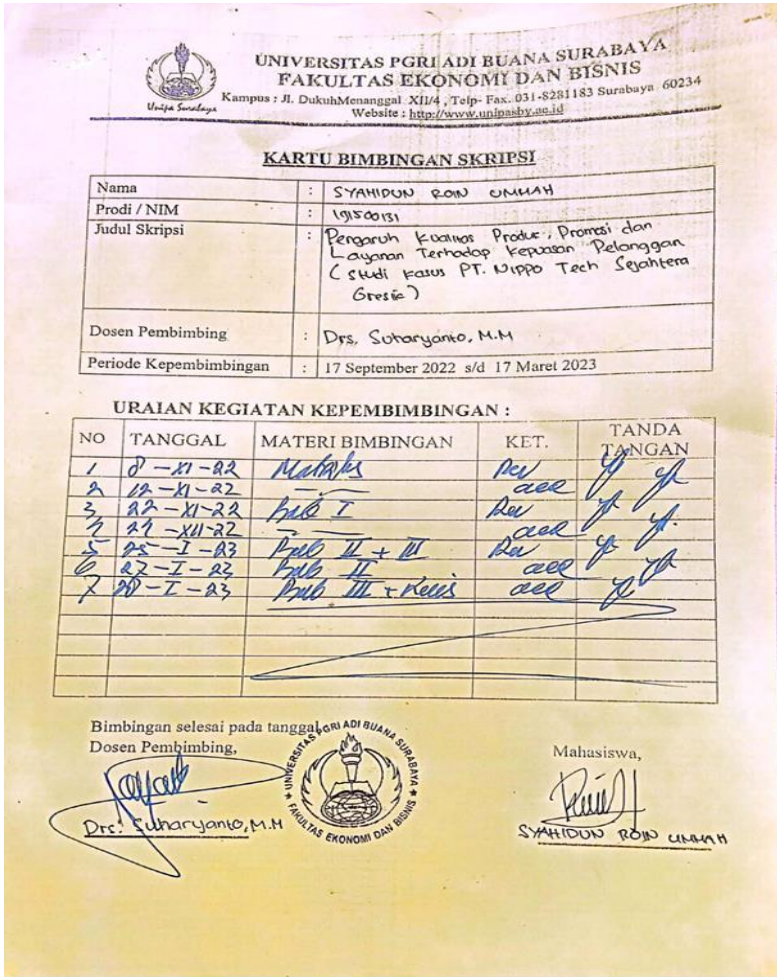 UNIVERSITAS PGRI ADI BUANA SURABAYA
FAKULTAS EKONOMI DAN BISNIS
Kampus : Jl. DukuhMenanggal XII/4 , Telp- Fax. 031-8281183 Surabaya 60234
Website : http://www.unipasby.ac.id
Unipa Surabaya
KARTU BIMBINGAN SKRIPSI
Nama : SYAHIDUN ROIN UMMAH
Prodi / NIM : 191500131
Judul Skripsi : Pengaruh Kualitas Produk, Promosi dan
Layanan Terhadap Kepuasan Pelanggan
( Studi Kasus PT. Nippo Tech Sejahtera
Gresik )
Dosen Pembimbing : Drs. Suharyanto, M.M
Periode Kepembimbingan : 17 September 2022 s/d 17 Maret 2023
URAIAN KEGIATAN KEPEMBIMBINGAN :
NO TANGGAL MATERI BIMBINGAN KET. TANDA TANGAN
1 8-XI-22 Rev
2 12-XI-22 acc
3 22-XI-22 Bab I Rev
4 21-XII-22 acc
5 25-I-23 Bab II + III Rev
6 27-I-23 Bab II acc
7 28-I-23 Bab III + acc
Bimbingan selesai pada tanggal
Dosen Pembimbing,
Mahasiswa,
UNIVERSITAS PGRI ADI BUANA SURABAYA
FAKULTAS EKONOMI DAN BISNIS
Drs. Suharyanto, M.M
SYAHIDUN ROIN UMMAH